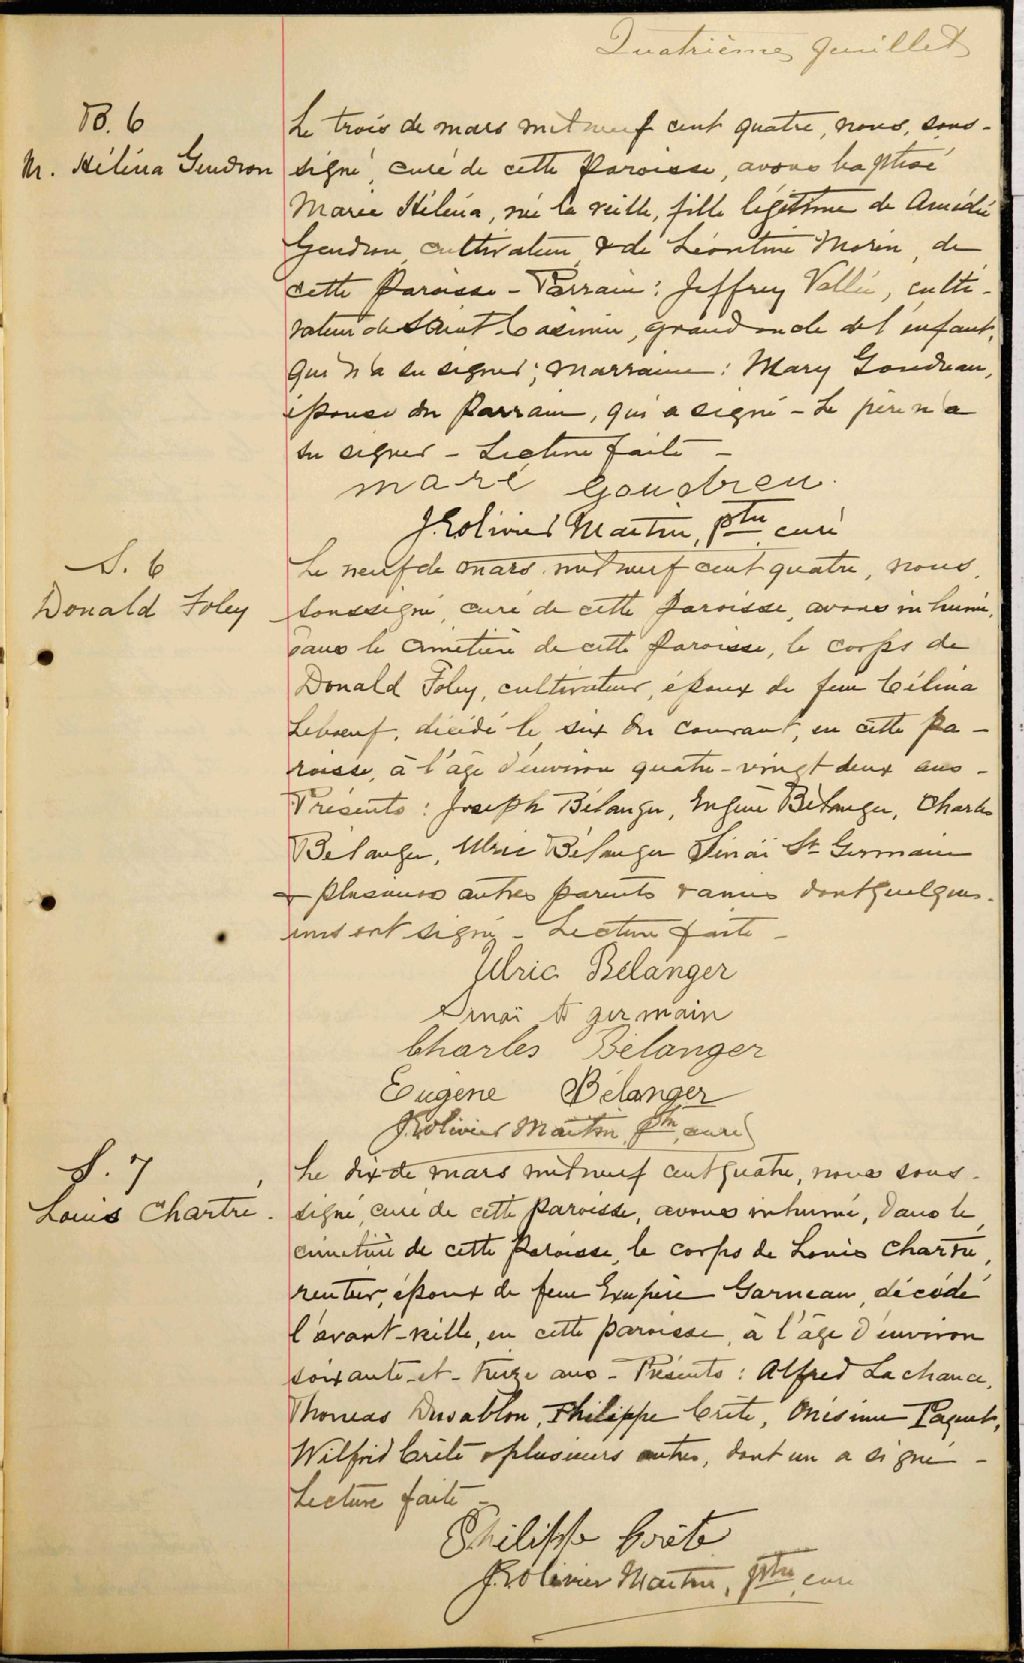 Quatrième feuillet
B. 6
M. Héléna Gendron
Le trois de mars mil neuf cent quatre, nous, sous-
signé, curé de cette paroisse, avons baptisé
Marie Héléna, née la veille, fille légitime de Amédée
Gendron, cultivateur, & de Léontine Morin, de
cette paroisse - Parrain : Jeffrey Vallée, culti-
vateur de Saint-Casimir, grand oncle de l'enfant,
qui n'a su signer ; marraine : Mary Goudreau,
épouse du parrain, qui a signé - Le père n'a
su signer - Lecture faite -
maré Goudreu.
J. E. Olivier Martin, ptre, curé
S. 6
Donald Foley
Le neuf de mars mil neuf cent quatre, nous,
soussigné, curé de cette paroisse, avons inhumé,
dans le cimetière de cette paroisse, le corps de
Donald Foley, cultivateur, époux de feue Célina
Leboeuf, décédé le six du courant, en cette pa-
roisse, à l'âge d'environ quatre-vingt deux ans -
Présents : Joseph Bélanger, Eugène Bélanger, Charles
Bélanger, Ulric Bélanger Sinaï St Germain
& plusieurs autres parents & amis dont quelques-
uns ont signé - Lecture faite -
Ulric Bélanger
Sinaï St germain
Charles Bélanger
Eugène Bélanger
J. E. Olivier Martin, ptre, curé
S. 7
Louis Chartré.
Le dix de mars mil neuf cent quatre, nous sous-
signé, curé de cette paroisse, avons inhumé, dans le
cimetière de cette paroisse, le corps de Louis Chartré,
rentier, époux de feue Exupère Garneau, décédé
l'avant-veille, en cette paroisse, à l'âge d'environ
soixante-et-treize ans - Présents : Alfred Lachance,
Thomas Dusablon, Philippe Crête, Onésime Paquet,
Wilfrid Crête & plusieurs autres, dont un a signé -
Lecture faite -
Philippe Crête
J. E. Olivier Martin, ptre, curé